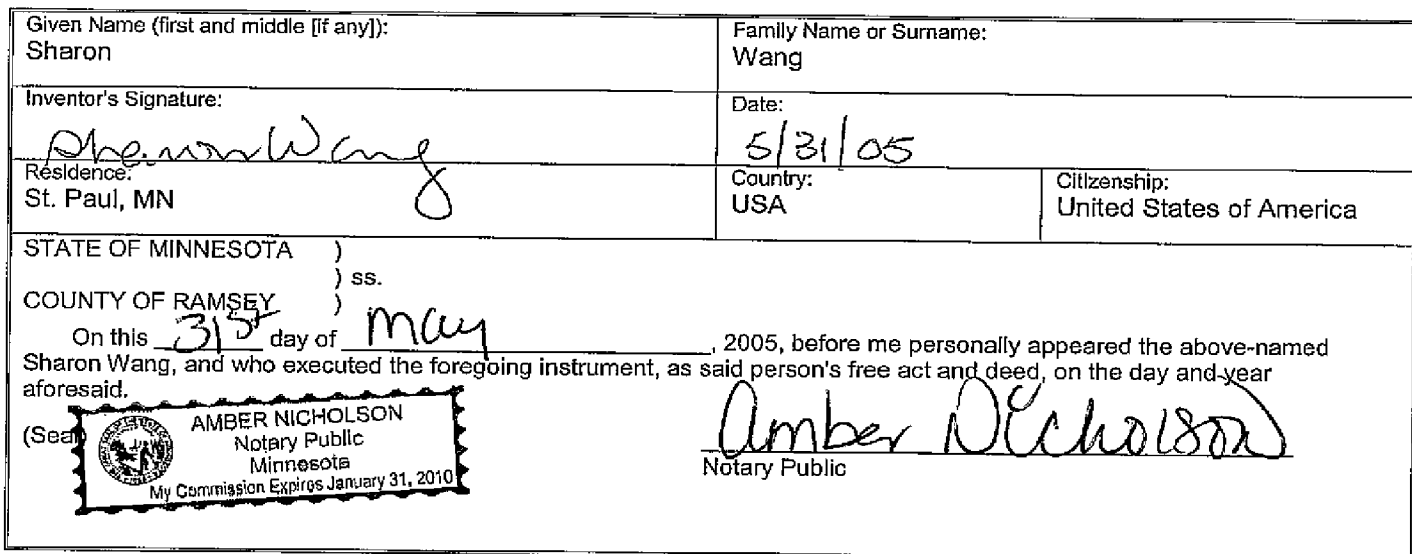 Given Name (first and middle [if any]):
Sharon
Family Name or Surname:
Wang
Inventor's Signature:
Sharon Wang
Date:
5/31/05
Residence:
St. Paul, MN
Country:
USA
Citizenship:
United States of America
STATE OF MINNESOTA )
) ss.
COUNTY OF RAMSEY )
On this 31st day of May, 2005, before me personally appeared the above-named
Sharon Wang, and who executed the foregoing instrument, as said person's free act and deed, on the day and year
aforesaid.
(Seal)
AMBER NICHOLSON
Notary Public
Minnesota
My Commission Expires January 31, 2010
Amber Nicholson
Notary Public